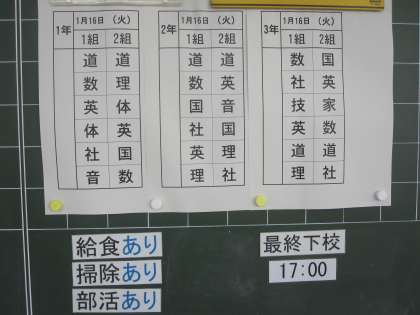 1年 1月16日 (火)
1組 2組
道 道
数 理
英 体
体 英
社 国
音 数
2年 1月16日 (火)
1組 2組
道 道
数 英
国 音
社 国
英 理
理 社
3年 1月16日 (火)
1組 2組
数 国
社 英
技 家
英 数
道 道
理 社
給食あり
掃除あり
部活あり
最終下校
17:00